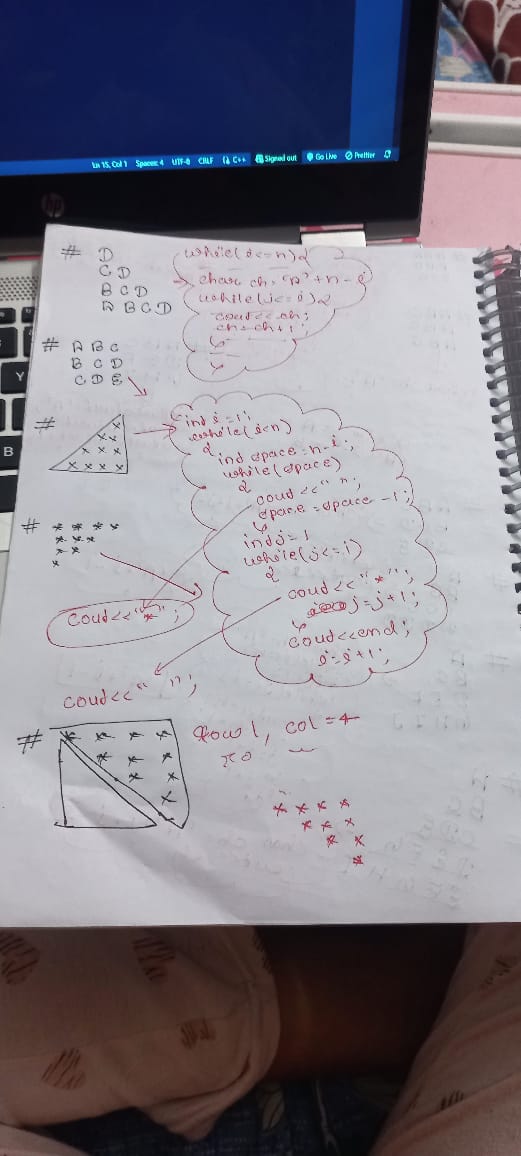 Ln 15, Col 1 Spaces: 4 UTF-8 CRLF C++ Signed out Go Live Prettier
hp
# D
C D
B C D
A B C D
while(i<=n){
char ch = 'A'+n-i
while(j<=i){
cout<<ch;
ch=ch+1;
}
}
# A B C
B C D
C D E
#
x
x x
x x x
x x x x
int i=1;
while(i<n)
{
int space=n-i;
while(space)
{
cout<<" ";
space=space-1;
}
int j=1
while(j<=i)
{
cout<<"*";
j=j+1;
}
cout<<end;
i=i+1;
#
* * * *
* * *
* *
*
Cout<<"*";
cout<<" ";
#
* * * *
* * *
* *
*
Row 1, col=4
* * * *
* * *
* *
*
Y
B